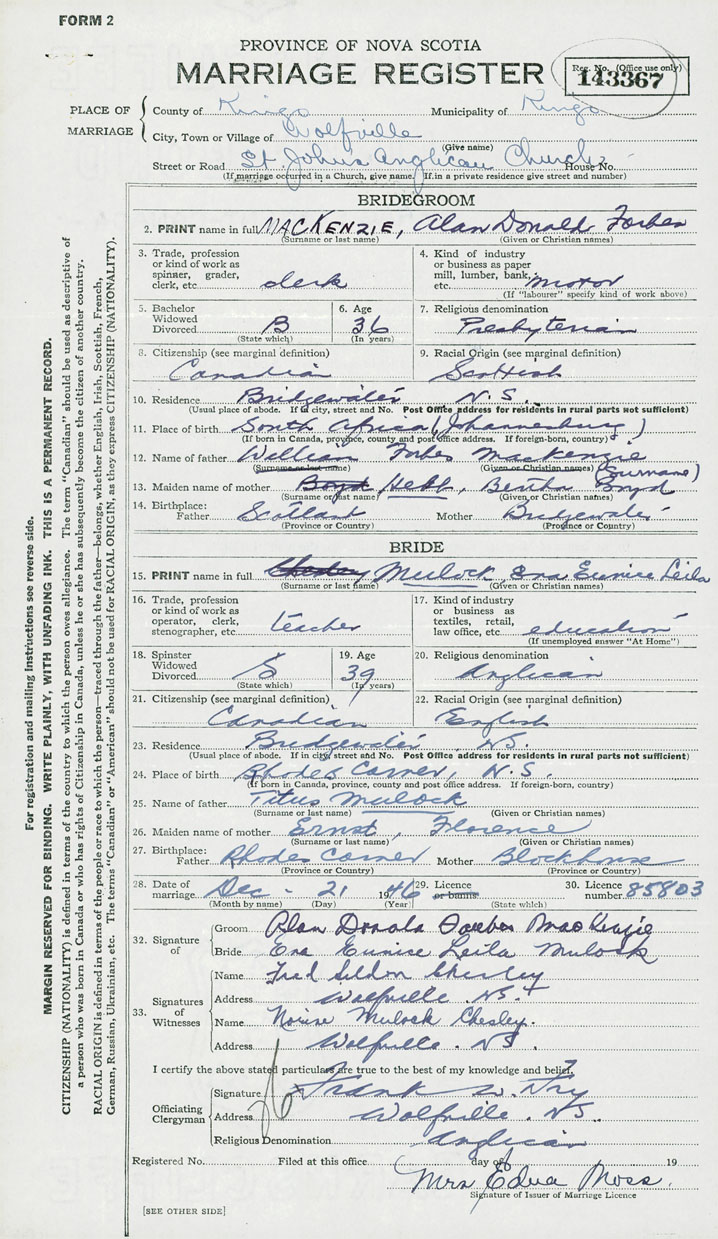 FORM 2
PROVINCE OF NOVA SCOTIA
MARRIAGE REGISTER
Reg. No. (Office use only)
143367
PLACE OF MARRIAGE
County of Kings Municipality of Kings
City, Town or Village of Wolfville
(Give name)
Street or Road St John's Anglican Church House No.
(If marriage occurred in a Church, give name. If in a private residence give street and number)
BRIDEGROOM
2. PRINT name in full MACKENZIE, Alan Donald Forbes
(Surname or last name) (Given or Christian names)
3. Trade, profession or kind of work as spinner, grader, clerk, etc. clerk
4. Kind of industry or business as paper mill, lumber, bank, etc. motor
(If "labourer" specify kind of work above)
5. Bachelor Widowed Divorced B
(State which)
6. Age 36
(In years)
7. Religious denomination Presbyterian
8. Citizenship (see marginal definition) Canadian
9. Racial Origin (see marginal definition) Scottish
10. Residence Bridgewater N.S.
(Usual place of abode. If in city, street and No. Post Office address for residents in rural parts not sufficient)
11. Place of birth South Africa (Johannesburg)
(If born in Canada, province, county and post office address. If foreign-born, country)
12. Name of father William Forbes Mackenzie
(Surname or last name) (Given or Christian names) (Surname)
13. Maiden name of mother Boyd Hebb, Bertha Boyd
(Surname or last name) (Given or Christian names)
14. Birthplace: Father Scotland Mother Bridgewater
(Province or Country) (Province or Country)
BRIDE
15. PRINT name in full Chesley Mulock Eva Eunice Leila
(Surname or last name) (Given or Christian names)
16. Trade, profession or kind of work as operator, clerk, stenographer, etc. teacher
17. Kind of industry or business as textiles, retail, law office, etc. education
(If unemployed answer "At Home")
18. Spinster Widowed Divorced S
(State which)
19. Age 39
(In years)
20. Religious denomination Anglican
21. Citizenship (see marginal definition) Canadian
22. Racial Origin (see marginal definition) English
23. Residence Bridgewater N.S.
(Usual place of abode. If in city street and No. Post Office address for residents in rural parts not sufficient)
24. Place of birth Rhodes Corner, N.S.
(If born in Canada, province, county and post office address. If foreign-born, country)
25. Name of father Titus Mulock
(Surname or last name) (Given or Christian names)
26. Maiden name of mother Ernst, Florence
(Surname or last name) (Given or Christian names)
27. Birthplace: Father Rhodes Corner Mother Blockhouse
(Province or Country) (Province or Country)
28. Date of marriage Dec - 21 1946
(Month by name) (Day) (Year)
29. Licence or banns
(State which)
30. Licence number 85803
32. Signature of
Groom Alan Donald Forbes MacKenzie
Bride Eva Eunice Leila Mulock
33. Signatures of Witnesses
Name Fred Seldon Chesley
Address Wolfville N.S.
Name Mulock Chesley.
Address Wolfville. N.S.
I certify the above stated particulars are true to the best of my knowledge and belief.
Officiating Clergyman
Signature Frank W. Fry
Address Wolfville. N.S.
Religious Denomination Anglican
Registered No. Filed at this office day of 19
Mrs Edna Moss
Signature of Issuer of Marriage Licence
[SEE OTHER SIDE]
For registration and mailing instructions see reverse side.
MARGIN RESERVED FOR BINDING. WRITE PLAINLY, WITH UNFADING INK. THIS IS A PERMANENT RECORD.
CITIZENSHIP (NATIONALITY) is defined in terms of the country to which the person owes allegiance. The term "Canadian" should be used as descriptive of
a person who was born in Canada or who has rights of Citizenship in Canada, unless he or she has subsequently become the citizen of another country.
RACIAL ORIGIN is defined in terms of the people or race to which the person—traced through the father—belongs, whether English, Irish, Scottish, French,
German, Russian, Ukrainian, etc. The terms "Canadian" or "American" should not be used for RACIAL ORIGIN, as they express CITIZENSHIP (NATIONALITY).